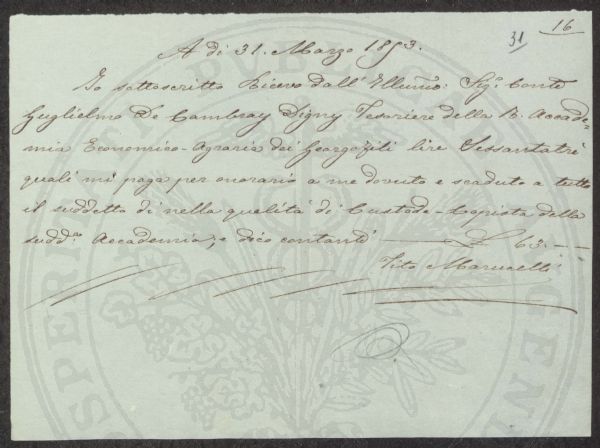 16
31
A dì 31. Marzo 1853.
Io sottoscritto Ricevo dall'Illumo: Sigr. Conte
Guglielmo De Cambray Digny Tesoriere della R. Accade=
mia Economico-Agraria dei Georgofili lire Sessantatré
quali mi paga per onorario a me dovuto e scaduto a tutto
il suddetto dì nella qualità di Custode-Copista della
sudda. Accademia; e dico contanti £ 63. -
Vito Marucelli